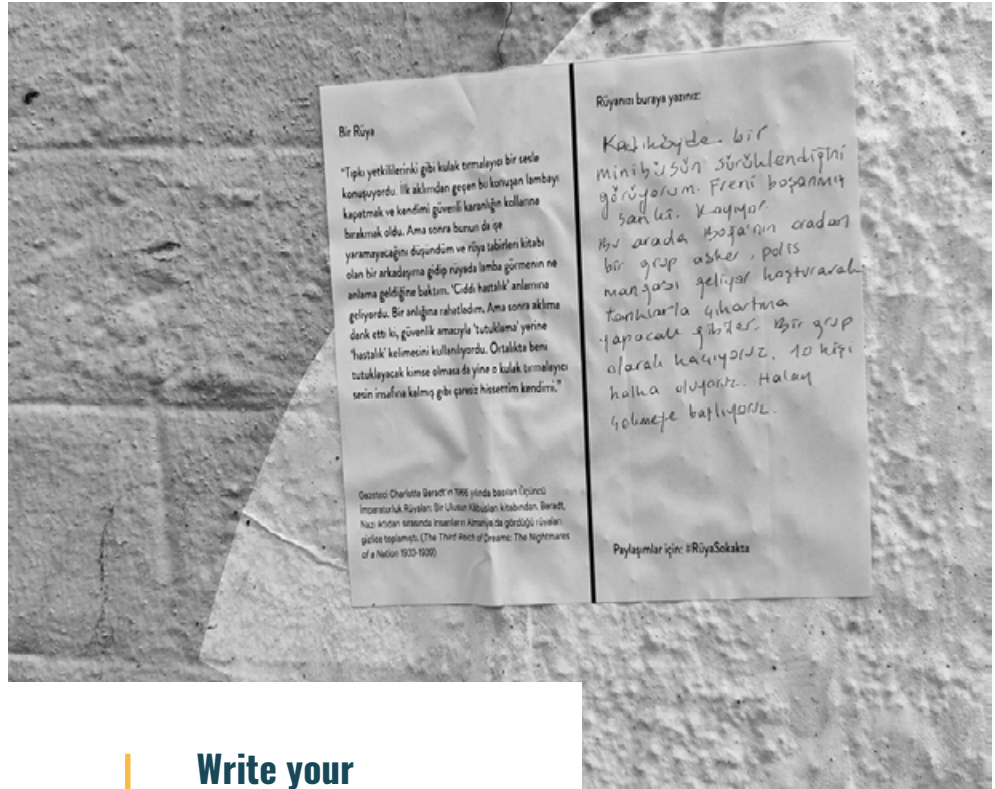 Bir Rüya
"Tıpkı yetkililerinki gibi kulak tırmalayıcı bir sesle
konuşuyordu. İlk aklımdan geçen bu konuşan lambayı
kapatmak ve kendimi güvenli karanlığın kollarına
bırakmak oldu. Ama sonra bunun da işe
yaramayacağını düşündüm ve rüya tabirleri kitabı
olan bir arkadaşıma gidip rüyada lamba görmenin ne
anlama geldiğine baktım. 'Ciddi hastalık' anlamına
geliyordu. Bir anlığına rahatladım. Ama sonra aklıma
dank etti ki, güvenlik amacıyla 'tutuklama' yerine
'hastalık' kelimesini kullanılıyordu. Ortalıkta beni
tutuklayacak kimse olmasa da yine o kulak tırmalayıcı
sesin insafına kalmış gibi çaresiz hissettim kendimi."
Gazeteci Charlotte Beradt'ın 1966 yılında basılan Üçüncü
İmparatorluk Rüyaları: Bir Ulusun Kabusları kitabından. Beradt,
Nazi iktidarı sırasında insanların Almanya'da gördüğü rüyaları
gizlice toplamıştı. (The Third Reich of Dreams: The Nightmares
of a Nation 1933-1939)
Rüyanızı buraya yazınız:
Kadıköyde bir
minibüsün sürüklendiğini
görüyorum. Freni boşanmış
sanki. Kayıyor.
Bu arada Boğa'nın oradan
bir grup asker, polis
mangası geliyor koşturarak
tanklarla çıkartma
yapacak gibiler. Bir grup
olarak kaçıyoruz. 10 kişi
halka oluyoruz. Halay
çekmeye başlıyoruz.
Paylaşımlar için: #RüyaSokakta
Write your